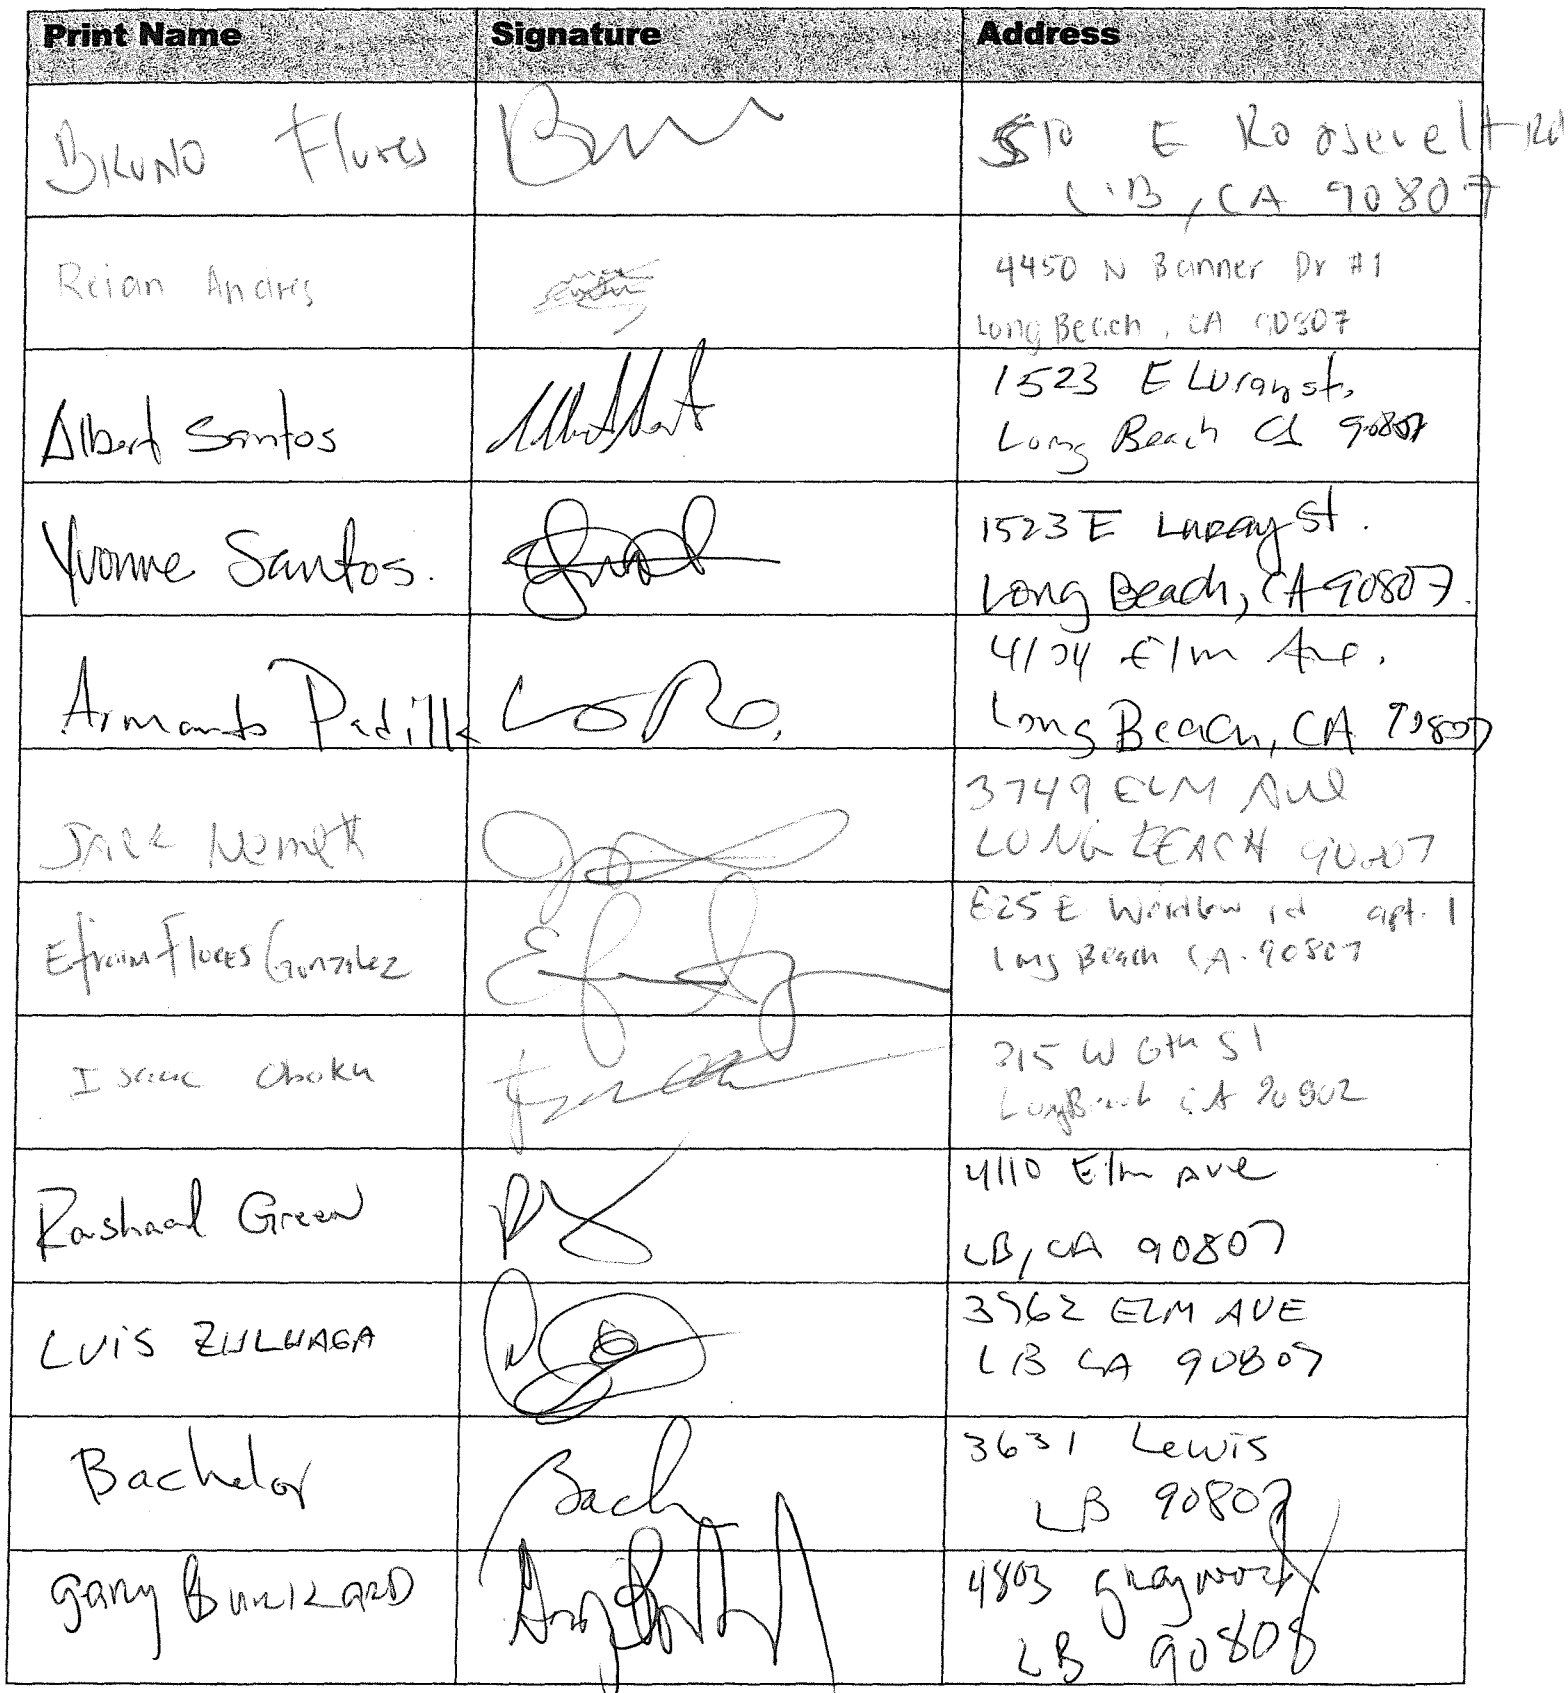 Print Name Signature Address
BRUNO Flores 510 E Roosevelt Rd
LB, CA 90807
Reian Andres 4450 N Banner Dr #1
Long Beach, CA 90807
Albert Santos 1523 E Luray st.
Long Beach CA 90807
Yvonne Santos. 1523 E Luray St.
Long Beach, CA 90807.
Armando Padilla 4104 Elm Ave.
Long Beach, CA 90807
Jack Nemeth 3749 ELM Ave
LONG BEACH 90807
Efrain Flores Gonzalez 625 E Wardlow rd apt. 1
Long Beach CA. 90807
Isaac 315 W 6th St
Long Beach CA 90802
Rashaad Green 4110 Elm Ave
LB, CA 90807
LUIS ZULUAGA 3962 ELM AVE
LB CA 90807
Bachelor Bach 3631 Lewis
LB 90807
Gary BURKARD 4803
LB 90808